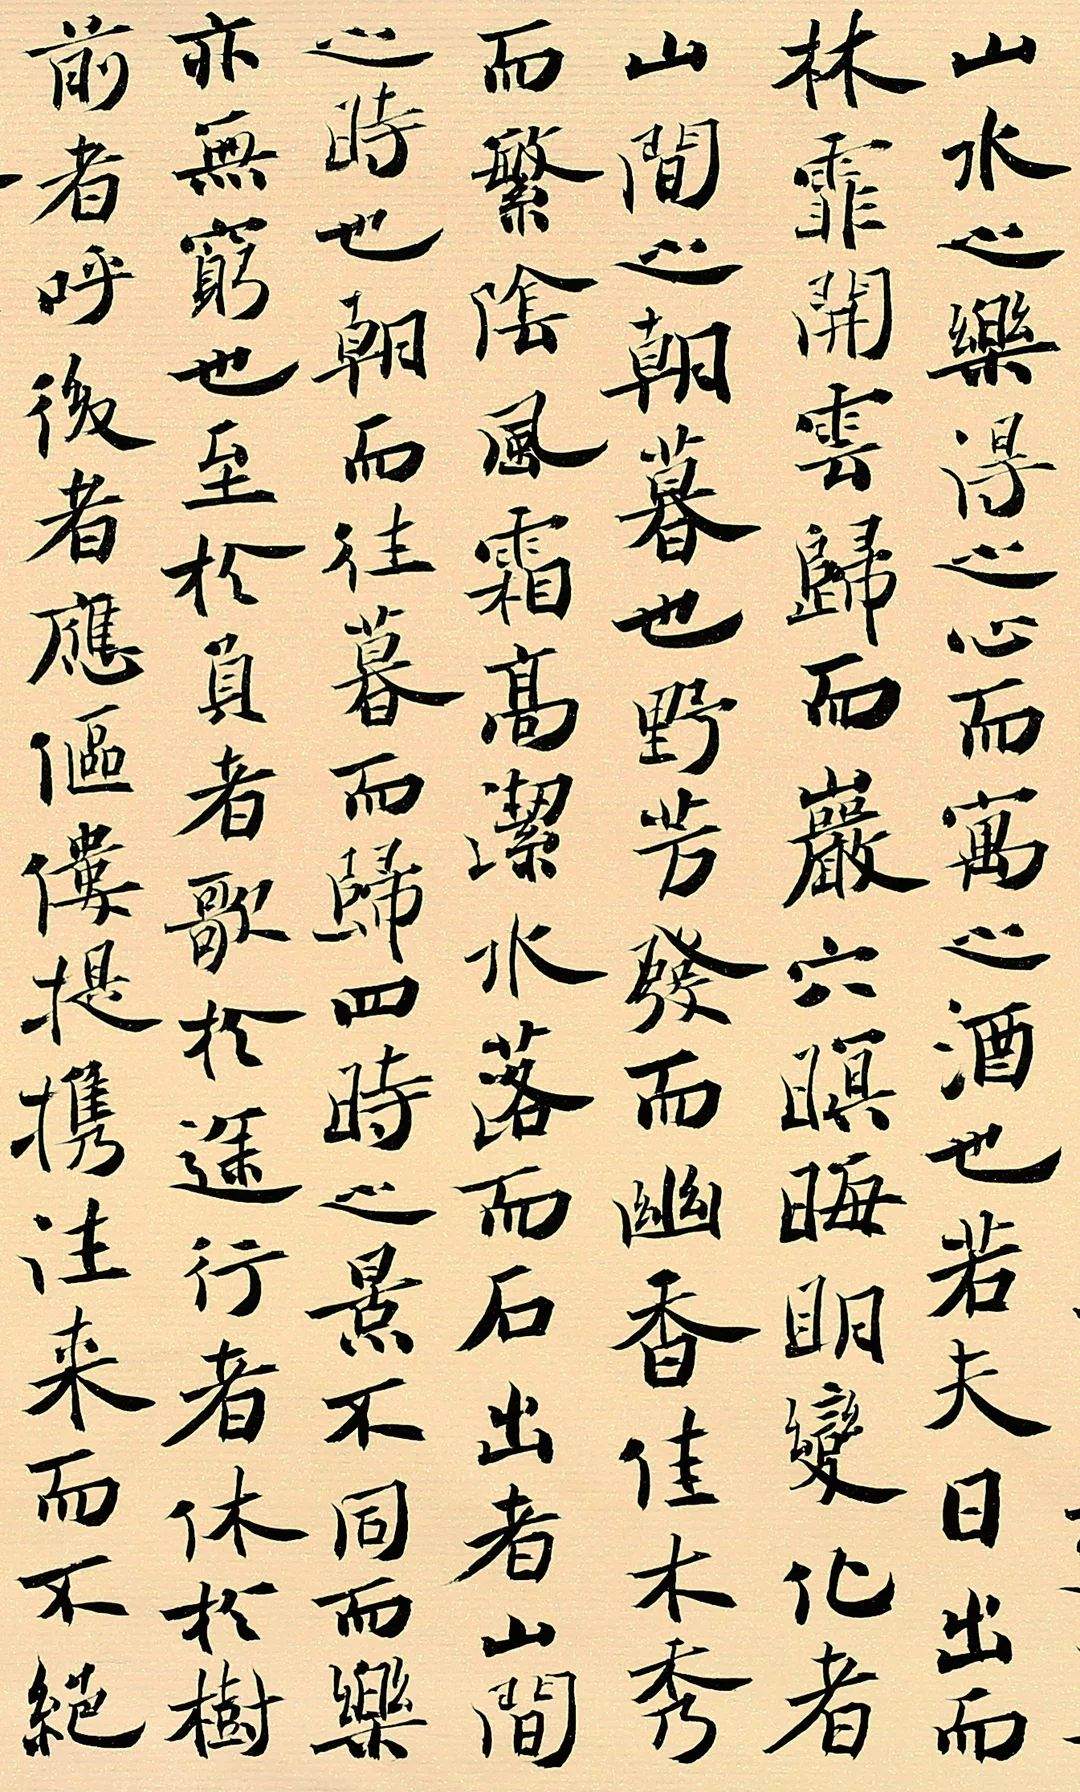 山水之樂得之心而寓之酒也若夫日出而
林霏開雲歸而巖穴暝晦明變化者
山間之朝暮也野芳發而幽香佳木秀
而繁陰風霜高潔水落而石出者山間
之時也朝而往暮而歸四時之景不同而樂
亦無窮也至於負者歌於途行者休於樹
前者呼後者應傴僂提携往来而不絕